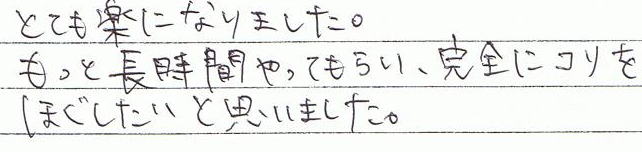 とても楽になりました。
もっと長時間やってもらい、完全にコリを
ほぐしたいと思いました。